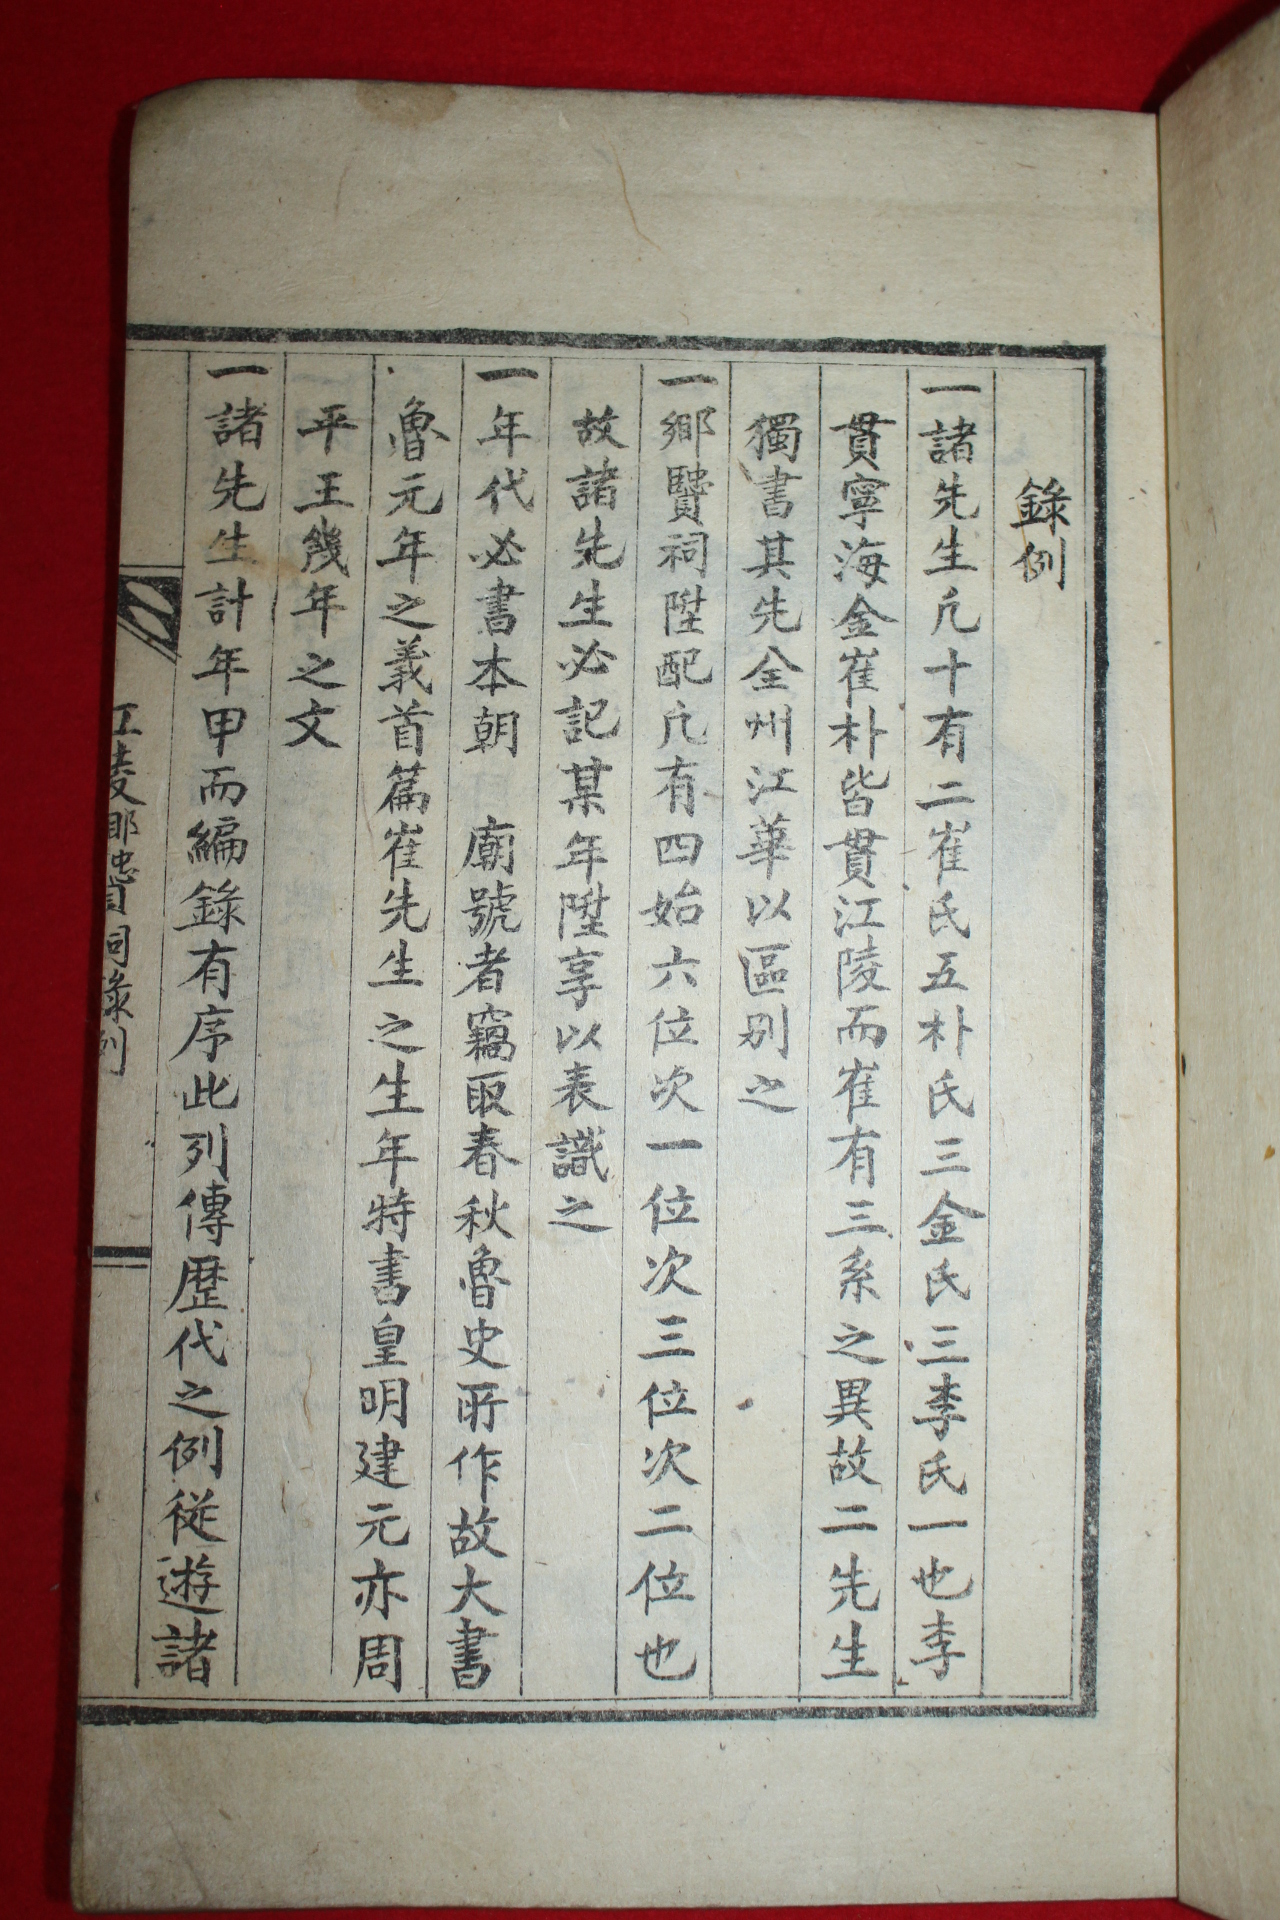 錄例
一諸先生凡十有二崔氏五朴氏三金氏三李氏一也李
貫寧海金崔朴皆貫江陵而崔有三系之異故二先生
獨書其先全州江華以區別之
一鄉賢祠陞配凡有四始六位次一位次三位次二位也
故諸先生必記某年陞享以表識之
一年代必書本朝 廟號者竊取春秋魯史所作故大書
魯元年之義首篇崔先生之生年特書皇明建元亦周
平王幾年之文
一諸先生計年甲而編錄有序此列傳歷代之例從遊諸
江陵鄉賢祠錄例